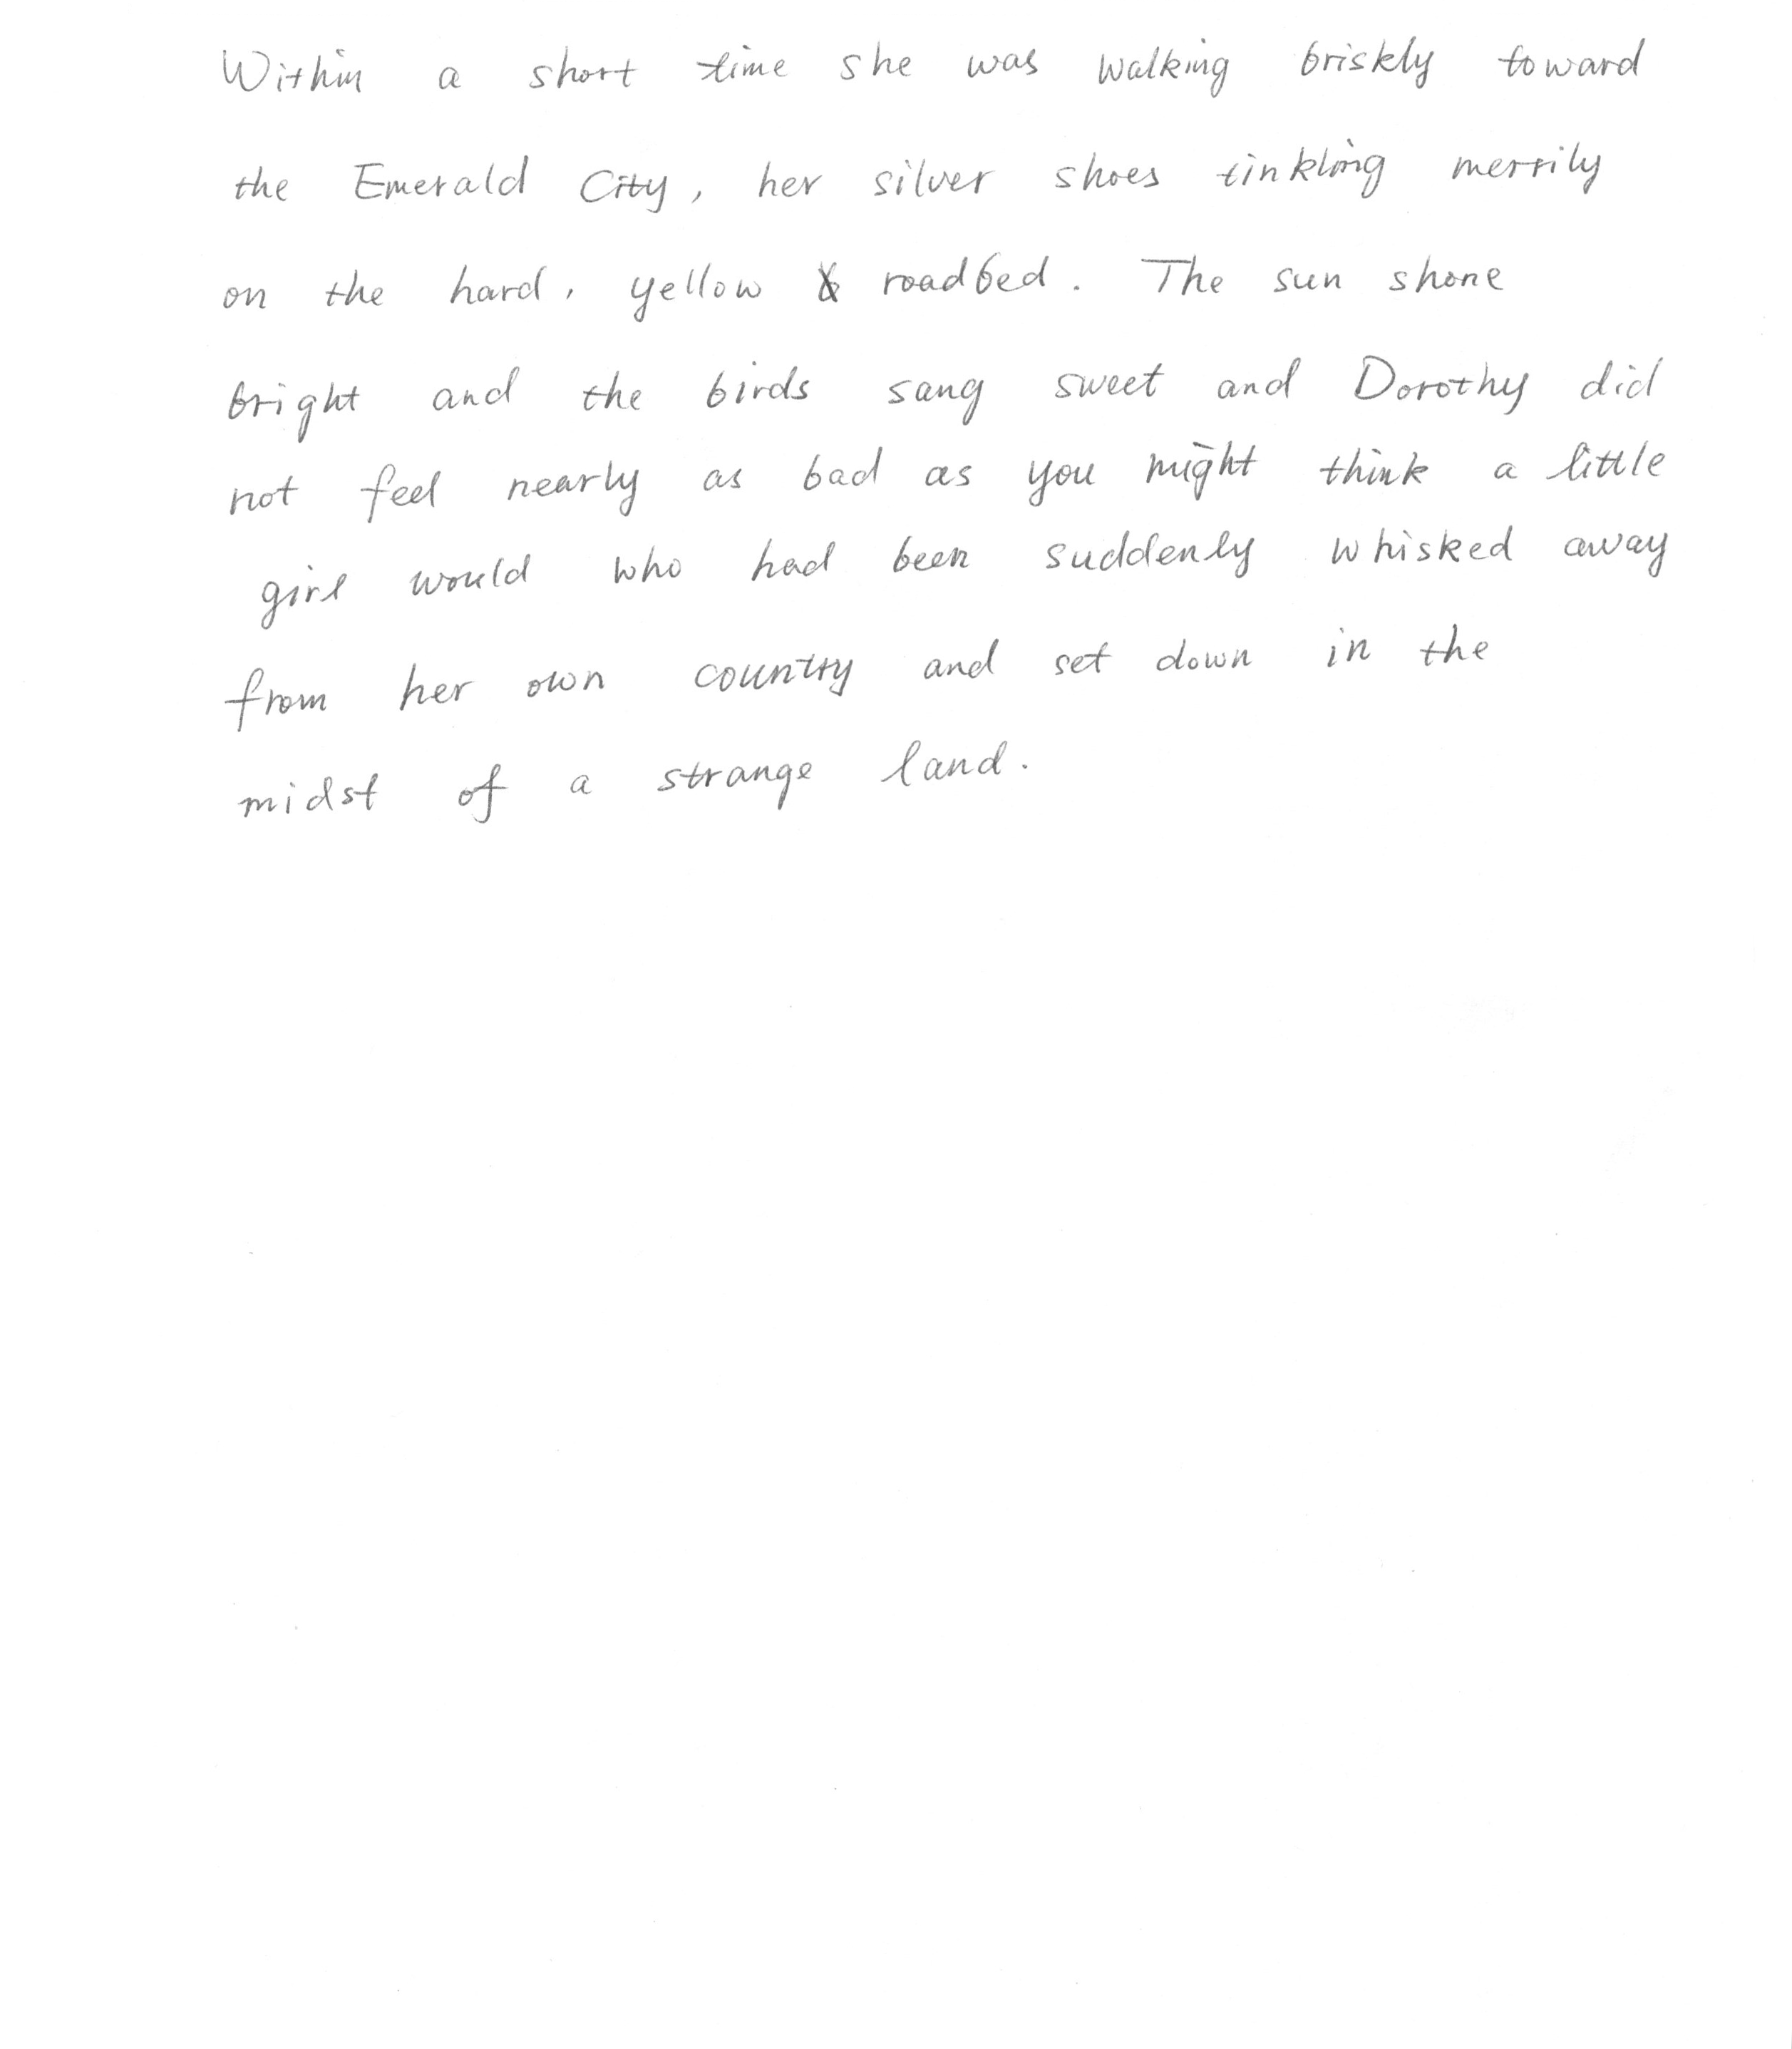 Within a short time she was walking briskly toward
the Emerald City, her silver shoes tinkling merrily
on the hard, yellow roadbed. The sun shone
bright and the birds sang sweet and Dorothy did
not feel nearly as bad as you might think a little
girl would who had been suddenly whisked away
from her own country and set down in the
midst of a strange land.